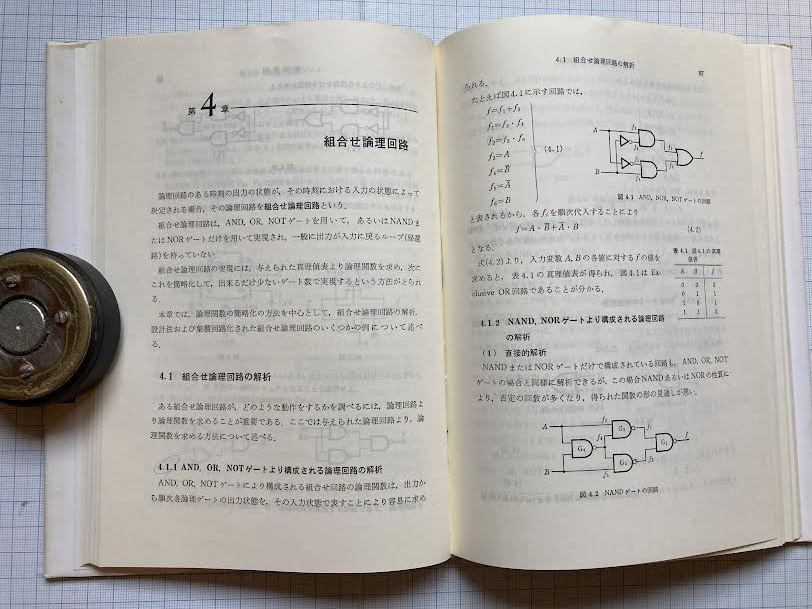 第4章
組合せ論理回路
論理回路のある時刻の出力の状態が，その時刻における入力の状態によって
決定される場合，その論理回路を組合せ論理回路という．
組合せ論理回路は，AND, OR, NOTゲートを用いて，あるいはNANDま
たはNORゲートだけを用いて実現され，一般に出力が入力に戻るループ(帰還
路)を持っていない．
組合せ論理回路の実現には，与えられた真理値表より論理関数を求め，次に
これを簡略化して，出来るだけ少ないゲート数で実現するという方法がとられ
る．
本章では，論理関数の簡略化の方法を中心として，組合せ論理回路の解析，
設計法および集積回路化された組合せ論理回路のいくつかの例について述べ
る．
4.1 組合せ論理回路の解析
ある組合せ論理回路が，どのような動作をするかを調べるには，論理回路よ
り論理関数を求めることが重要である．ここでは与えられた論理回路より，論
理関数を求める方法について述べる．
4.1.1 AND, OR, NOTゲートより構成される論理回路の解析
AND, OR, NOTゲートにより構成される組合せ回路の論理関数は，出力か
ら順次各論理ゲートの出力状態を，その入力状態で表すことにより容易に求め
4.1 組合せ論理回路の解析
87
られる．
たとえば図4.1に示す回路では，
f=f₁+f₂
f₁=f₃・f₄
f₂=f₅・f₆
f₃=A
f₄=B̅
f₅=A̅
f₆=B
(4.1)
A
B
f
図 4.1 AND, NOR, NOTゲートの回路
と表されるから，各fᵢを順次代入することにより
f=A・B̅+A̅・B
(4.2)
となる．
式(4.2)より，入力変数A, Bの各値に対するfの値を
求めると，表4.1の真理値表が得られ，図4.1は Ex-
clusive OR回路であることが分かる．
表 4.1 図4.1の真理
値表
A B f
0 0 0
0 1 1
1 0 1
1 1 0
4.1.2 NAND, NORゲートより構成される論理回路
の解析
(1) 直接的解析
NANDまたはNORゲートだけで構成されている回路も，AND, OR, NOT
ゲートの場合と同様に解析できるが，この場合NANDあるいはNORの性質に
より，否定の回数が多くなり，得られた関数の形の見通しが悪い．
A
B
G₁
G₂
G₃
G₄
f
図 4.2 NANDゲートの回路